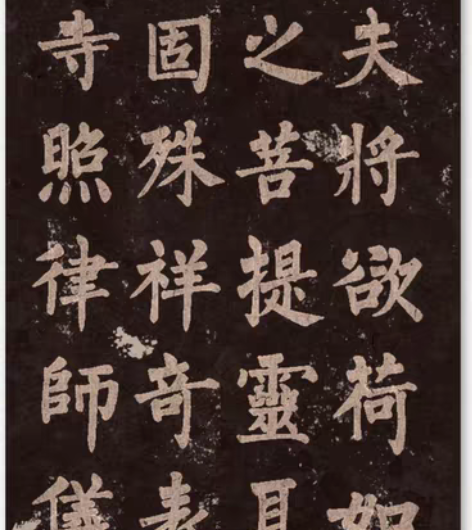 夫將欲荷如
之菩提靈
固殊祥奇表
寺照律師儀